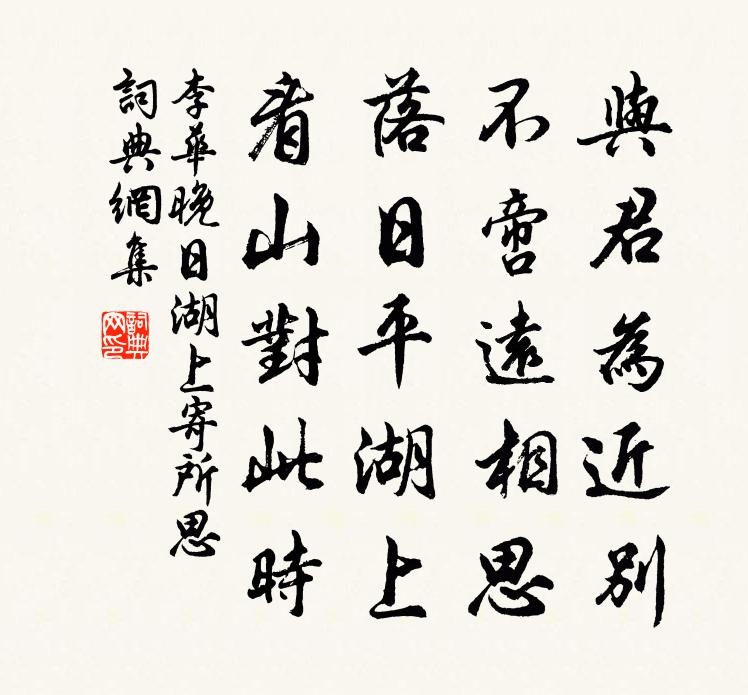 與君為近別
不啻遠相思
落日平湖上
看山對此時
李華晚日湖上寄所思
詞典網集
詞典
网印